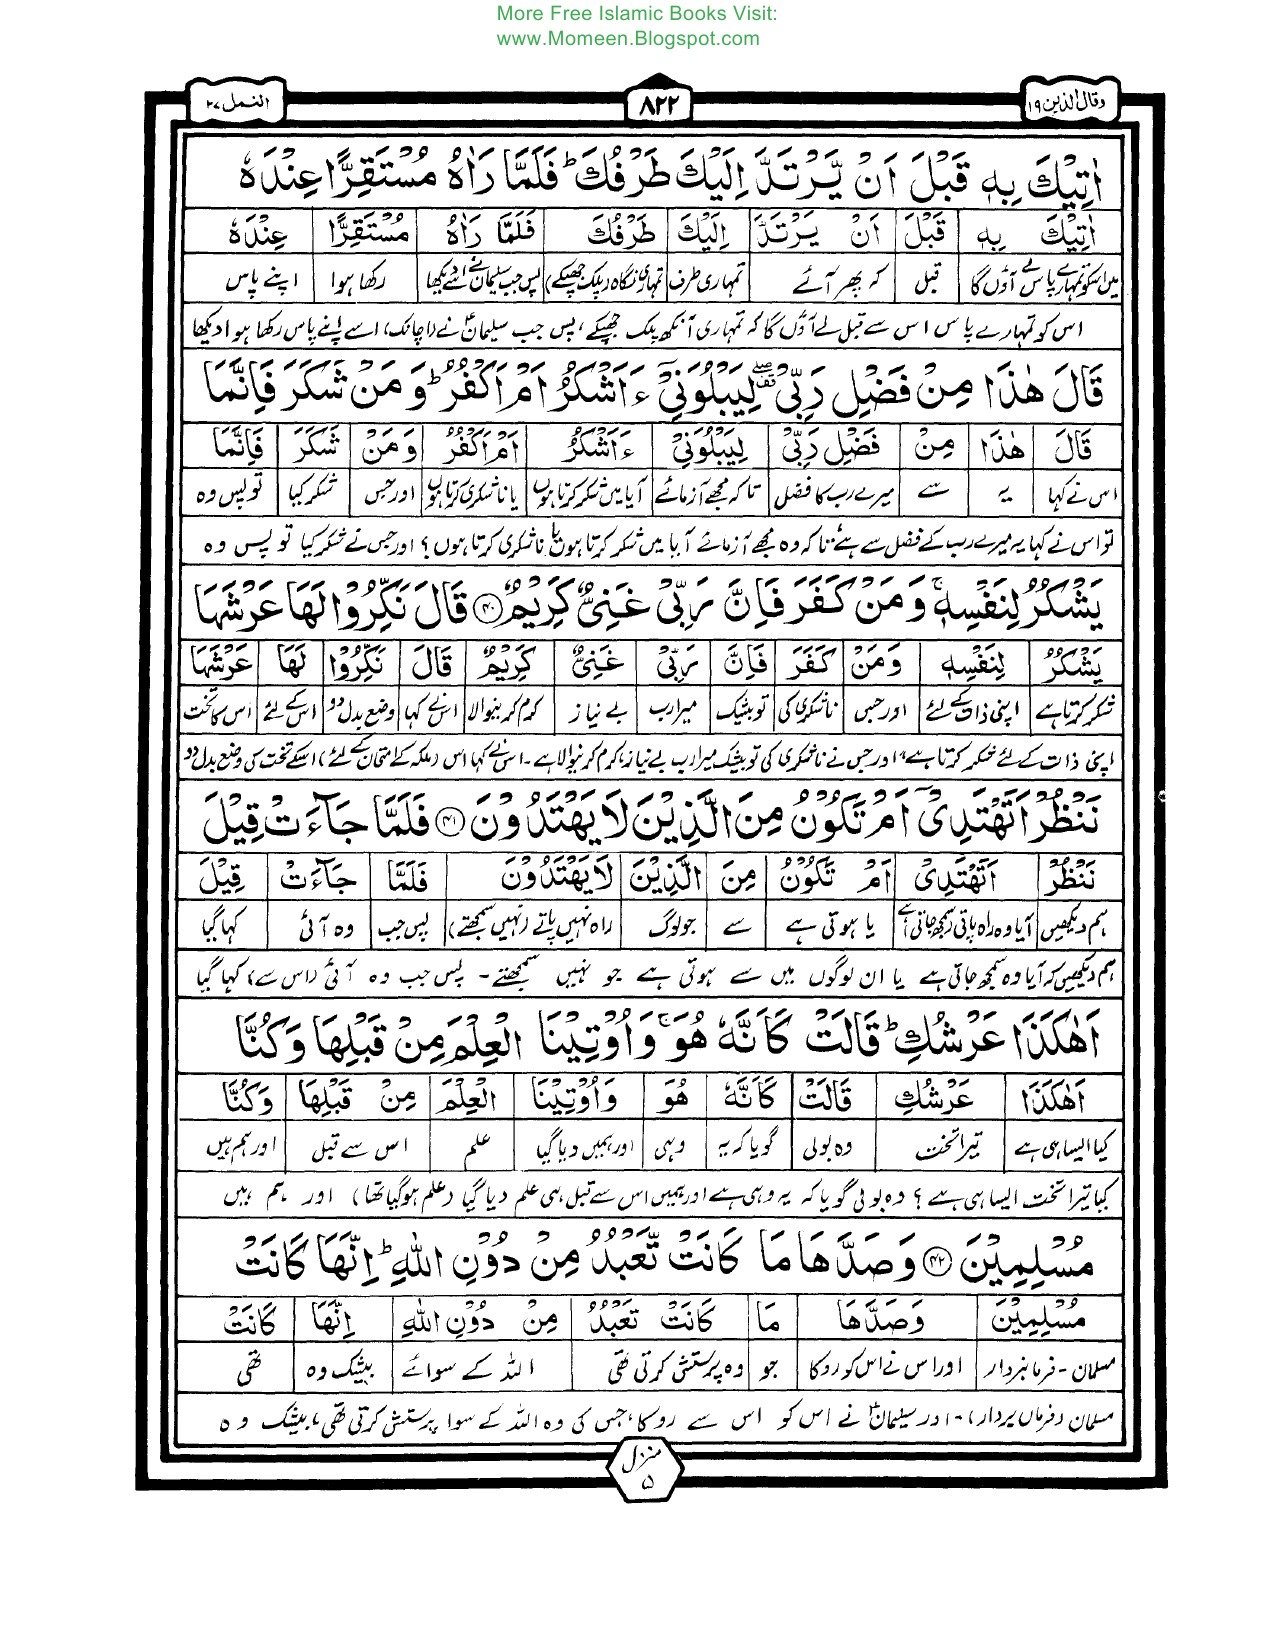 More Free Islamic Books Visit:
www.Momeen.Blogspot.com
وقال الذين ١٩
٨٢٢
النمل ٢٧
اٰتِيْكَ بِهٖ قَبْلَ اَنْ يَّرْتَدَّ اِلَيْكَ طَرْفُكَ ؕ فَلَمَّا رَاٰهُ مُسْتَقِرًّا عِنْدَهٗ
اٰتِيْكَ بِهٖ قَبْلَ اَنْ يَّرْتَدَّ اِلَيْكَ طَرْفُكَ فَلَمَّا رَاٰهُ مُسْتَقِرًّا عِنْدَهٗ
میں اسکو تمہارے پاس لے آؤں گا قبل کہ پھر آئے تمہاری طرف تمہاری نگاہ (پلک جھپکے) پس جب سلیمان نے اسے دیکھا رکھا ہوا اپنے پاس
اس کو تمہارے پاس اس سے قبل لے آؤں گا کہ تمہاری آنکھ پلک جھپکے، پس جب سلیمانؑ نے (اچانک) اسے اپنے پاس رکھا ہوا دیکھا
قَالَ هٰذَا مِنْ فَضْلِ رَبِّيْ ۖ لِيَبْلُوَنِيْٓ ءَاَشْكُرُ اَمْ اَكْفُرُ ؕ وَمَنْ شَكَرَ فَاِنَّمَا
قَالَ هٰذَا مِنْ فَضْلِ رَبِّيْ لِيَبْلُوَنِيْٓ ءَاَشْكُرُ اَمْ اَكْفُرُ وَمَنْ شَكَرَ فَاِنَّمَا
اس نے کہا یہ سے میرے رب کا فضل تاکہ مجھے آزمائے آیا میں شکر کرتا ہوں یا ناشکری کرتا ہوں اور جس شکر کیا تو پس وہ
تو اس نے کہا یہ میرے رب کے فضل سے ہے، تاکہ وہ مجھے آزمائے آیا میں شکر کرتا ہوں یا ناشکری کرتا ہوں؟ اور جس نے شکر کیا تو پس وہ
يَشْكُرُ لِنَفْسِهٖ ۚ وَمَنْ كَفَرَ فَاِنَّ رَبِّيْ غَنِيٌّ كَرِيْمٌ ﴿٤٠﴾ قَالَ نَكِّرُوْا لَهَا عَرْشَهَا
يَشْكُرُ لِنَفْسِهٖ وَمَنْ كَفَرَ فَاِنَّ رَبِّيْ غَنِيٌّ كَرِيْمٌ قَالَ نَكِّرُوْا لَهَا عَرْشَهَا
شکر کرتا ہے اپنی ذات کے لئے اور جس ناشکری کی تو بیشک میرا رب بے نیاز کرم کرنیوالا اس نے کہا وضع بدل دو اس کے لئے اس کا تخت
اپنی ذات کے لئے شکر کرتا ہے، اور جس نے ناشکری کی تو بیشک میرا رب بے نیاز، کرم کرنیوالا ہے۔ اس نے کہا اس (ملکہ کے امتحان کے لئے) اسکے تخت کی وضع بدل دو
نَنْظُرْ اَتَهْتَدِيْٓ اَمْ تَكُوْنُ مِنَ الَّذِيْنَ لَا يَهْتَدُوْنَ ﴿٤١﴾ فَلَمَّا جَآءَتْ قِيْلَ
نَنْظُرْ اَتَهْتَدِيْٓ اَمْ تَكُوْنُ مِنَ الَّذِيْنَ لَا يَهْتَدُوْنَ فَلَمَّا جَآءَتْ قِيْلَ
ہم دیکھیں آیا وہ راہ پاتی (سمجھ جاتی) ہے یا ہوتی ہے سے جو لوگ راہ نہیں پاتے (نہیں سمجھتے) پس جب وہ آئی کہا گیا
ہم دیکھیں کہ آیا وہ سمجھ جاتی ہے یا ان لوگوں میں سے ہوتی ہے جو نہیں سمجھتے۔ پس جب وہ آئی (اس سے) کہا گیا
اَهٰكَذَا عَرْشُكِ ؕ قَالَتْ كَاَنَّهٗ هُوَ ۚ وَاُوْتِيْنَا الْعِلْمَ مِنْ قَبْلِهَا وَكُنَّا
اَهٰكَذَا عَرْشُكِ قَالَتْ كَاَنَّهٗ هُوَ وَاُوْتِيْنَا الْعِلْمَ مِنْ قَبْلِهَا وَكُنَّا
کیا ایسا ہی ہے تیرا تخت وہ بولی گویا کہ یہ وہی اور ہمیں دیا گیا علم اس سے قبل اور ہم ہیں
کیا تیرا تخت ایسا ہی ہے؟ وہ بولی گویا کہ یہ وہی ہے اور ہمیں اس سے قبل ہی علم دیا گیا (علم ہو گیا تھا) اور ہم ہیں
مُسْلِمِيْنَ ﴿٤٢﴾ وَصَدَّهَا مَا كَانَتْ تَّعْبُدُ مِنْ دُوْنِ اللّٰهِ ؕ اِنَّهَا كَانَتْ
مُسْلِمِيْنَ وَصَدَّهَا مَا كَانَتْ تَعْبُدُ مِنْ دُوْنِ اللّٰهِ اِنَّهَا كَانَتْ
مسلمان - فرمانبردار اور اس نے اس کو روکا جو وہ پرستش کرتی تھی اللہ کے سوائے بیشک وہ تھی
مسلمان (فرماں بردار)۔ اور سلیمانؑ نے اس کو اس سے روکا، جس کی وہ اللہ کے سوا پرستش کرتی تھی، بیشک وہ
منزل
۵